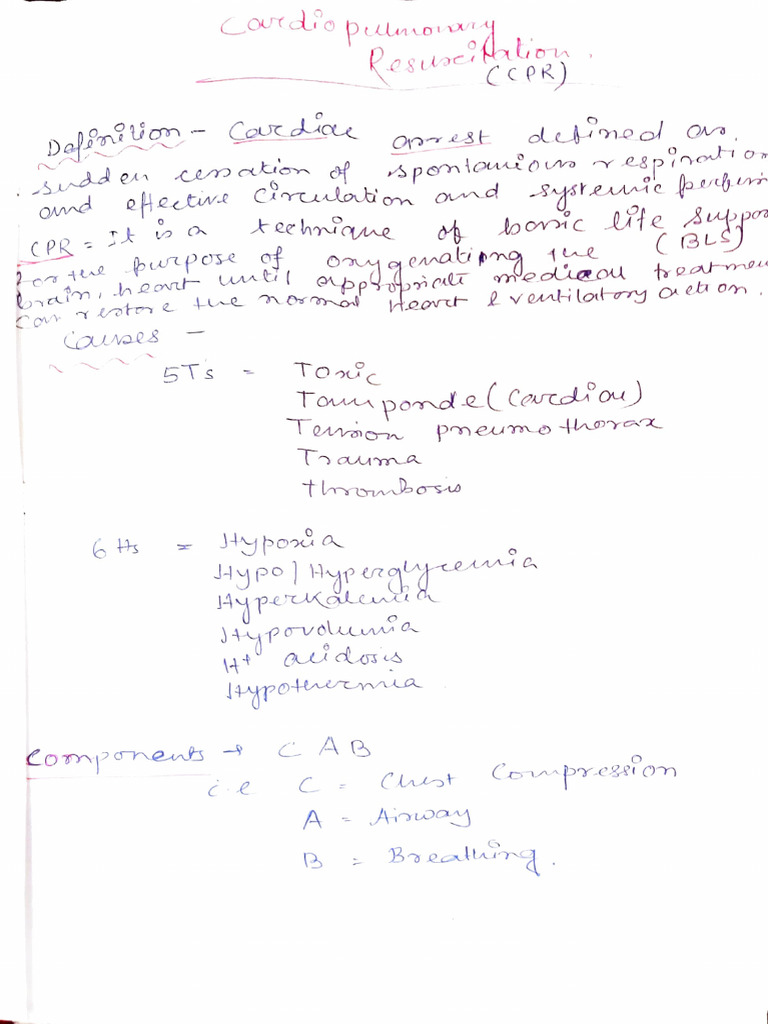 Cardiopulmonary
Resuscitation.
(CPR)
Definition - Cardiac arrest defined as
sudden cessation of spontanious respiration
and effective circulation and systemic perfusi
CPR = It is a technique of basic life suppo
(BLS)
for the purpose of oxygenating the
brain, heart until appropriate medical treatmen
can restore the normal Heart & ventilatory action.
Causes -
5Ts = Toxic
Tamponde (Cardiac)
Tension pneumothorax
Trauma
thrombosis
6 Hs = Hypoxia
Hypo/Hyperglycemia
Hyperkalemia
Hypovolumia
H+ acidosis
Hypothermia
Components → C A B
i.e C = Chest Compression
A = Airway
B = Breathing.